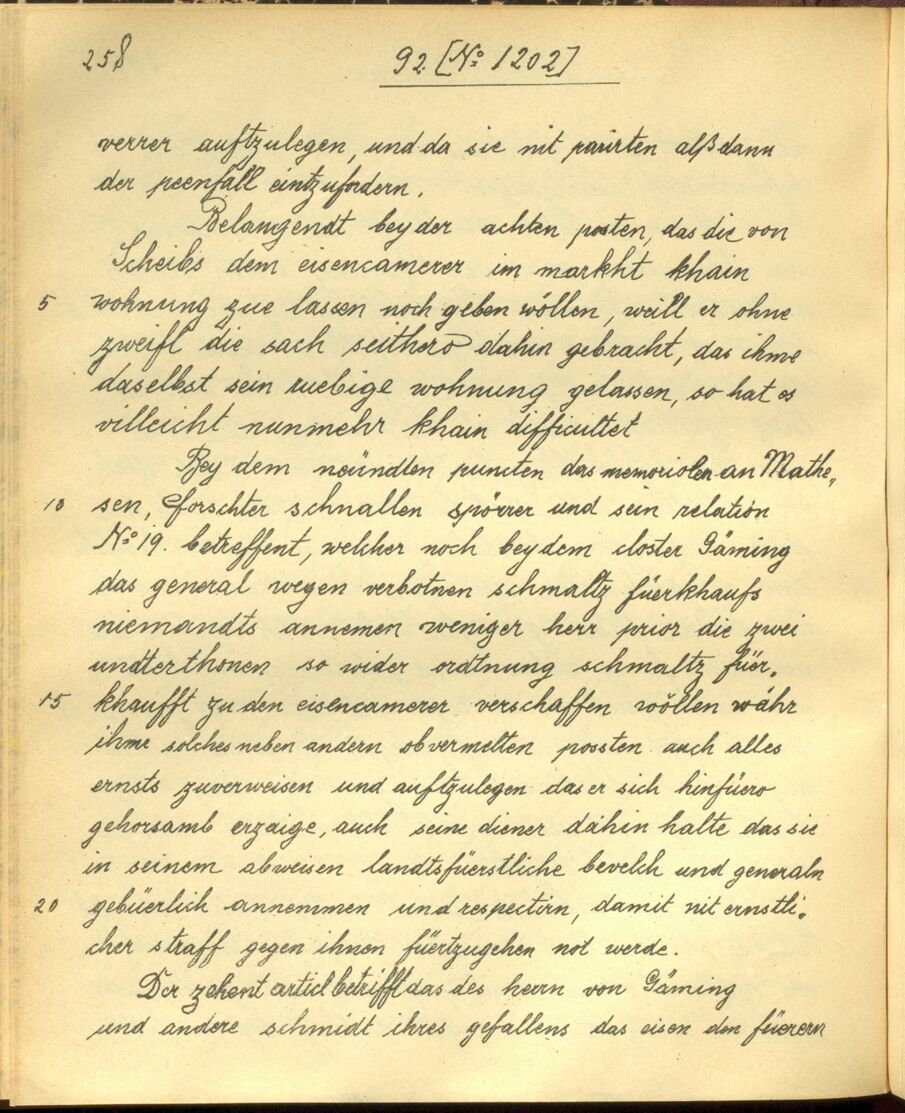 258
92 [No: 1202]
verrer auftzulegen, und da sie nit parirten alßdann
der peenfall eintzufordern.
Belangendt bey der achten posten, das die von
Scheibs dem eisencamerer im markht khain
5 wohnung zue lassen noch geben wöllen, weill er ohne
zweifl die sach seithero dahin gebracht, das ihme
daselbst sein ruebige wohnung gelassen, so hat es
villeicht nunmehr khain difficultet
Bey dem neündten puncten das memorialen an Mathe„
10 sen, forschter schnallen spörrer und sein relation
No: 19. betreffent, welcher noch bey dem closter Gäming
das general wegen verbotnen schmaltz füerkhaufs
niemandts annemen weniger herr prior die zwei
undterthonen so wider ordtnung schmaltz füer„
15 khaufft zu den eisencamerer verschaffen wöllen währ
ihme solches neben andern obvermelten possten auch alles
ernsts zuverweisen und auftzulegen das er sich hinfüero
gehorsamb erzaige, auch seine diener dahin halte das sie
in seinem abweisen landtsfüerstliche bevelch und generaln
20 gebüerlich annemmen und respectirn, damit nit ernstli„
cher straff gegen ihnen füertzugehen not werde.
Der zehent articl betrifft das des herrn von Gäming
und andere schmidt ihres gefallens das eisen den füerern